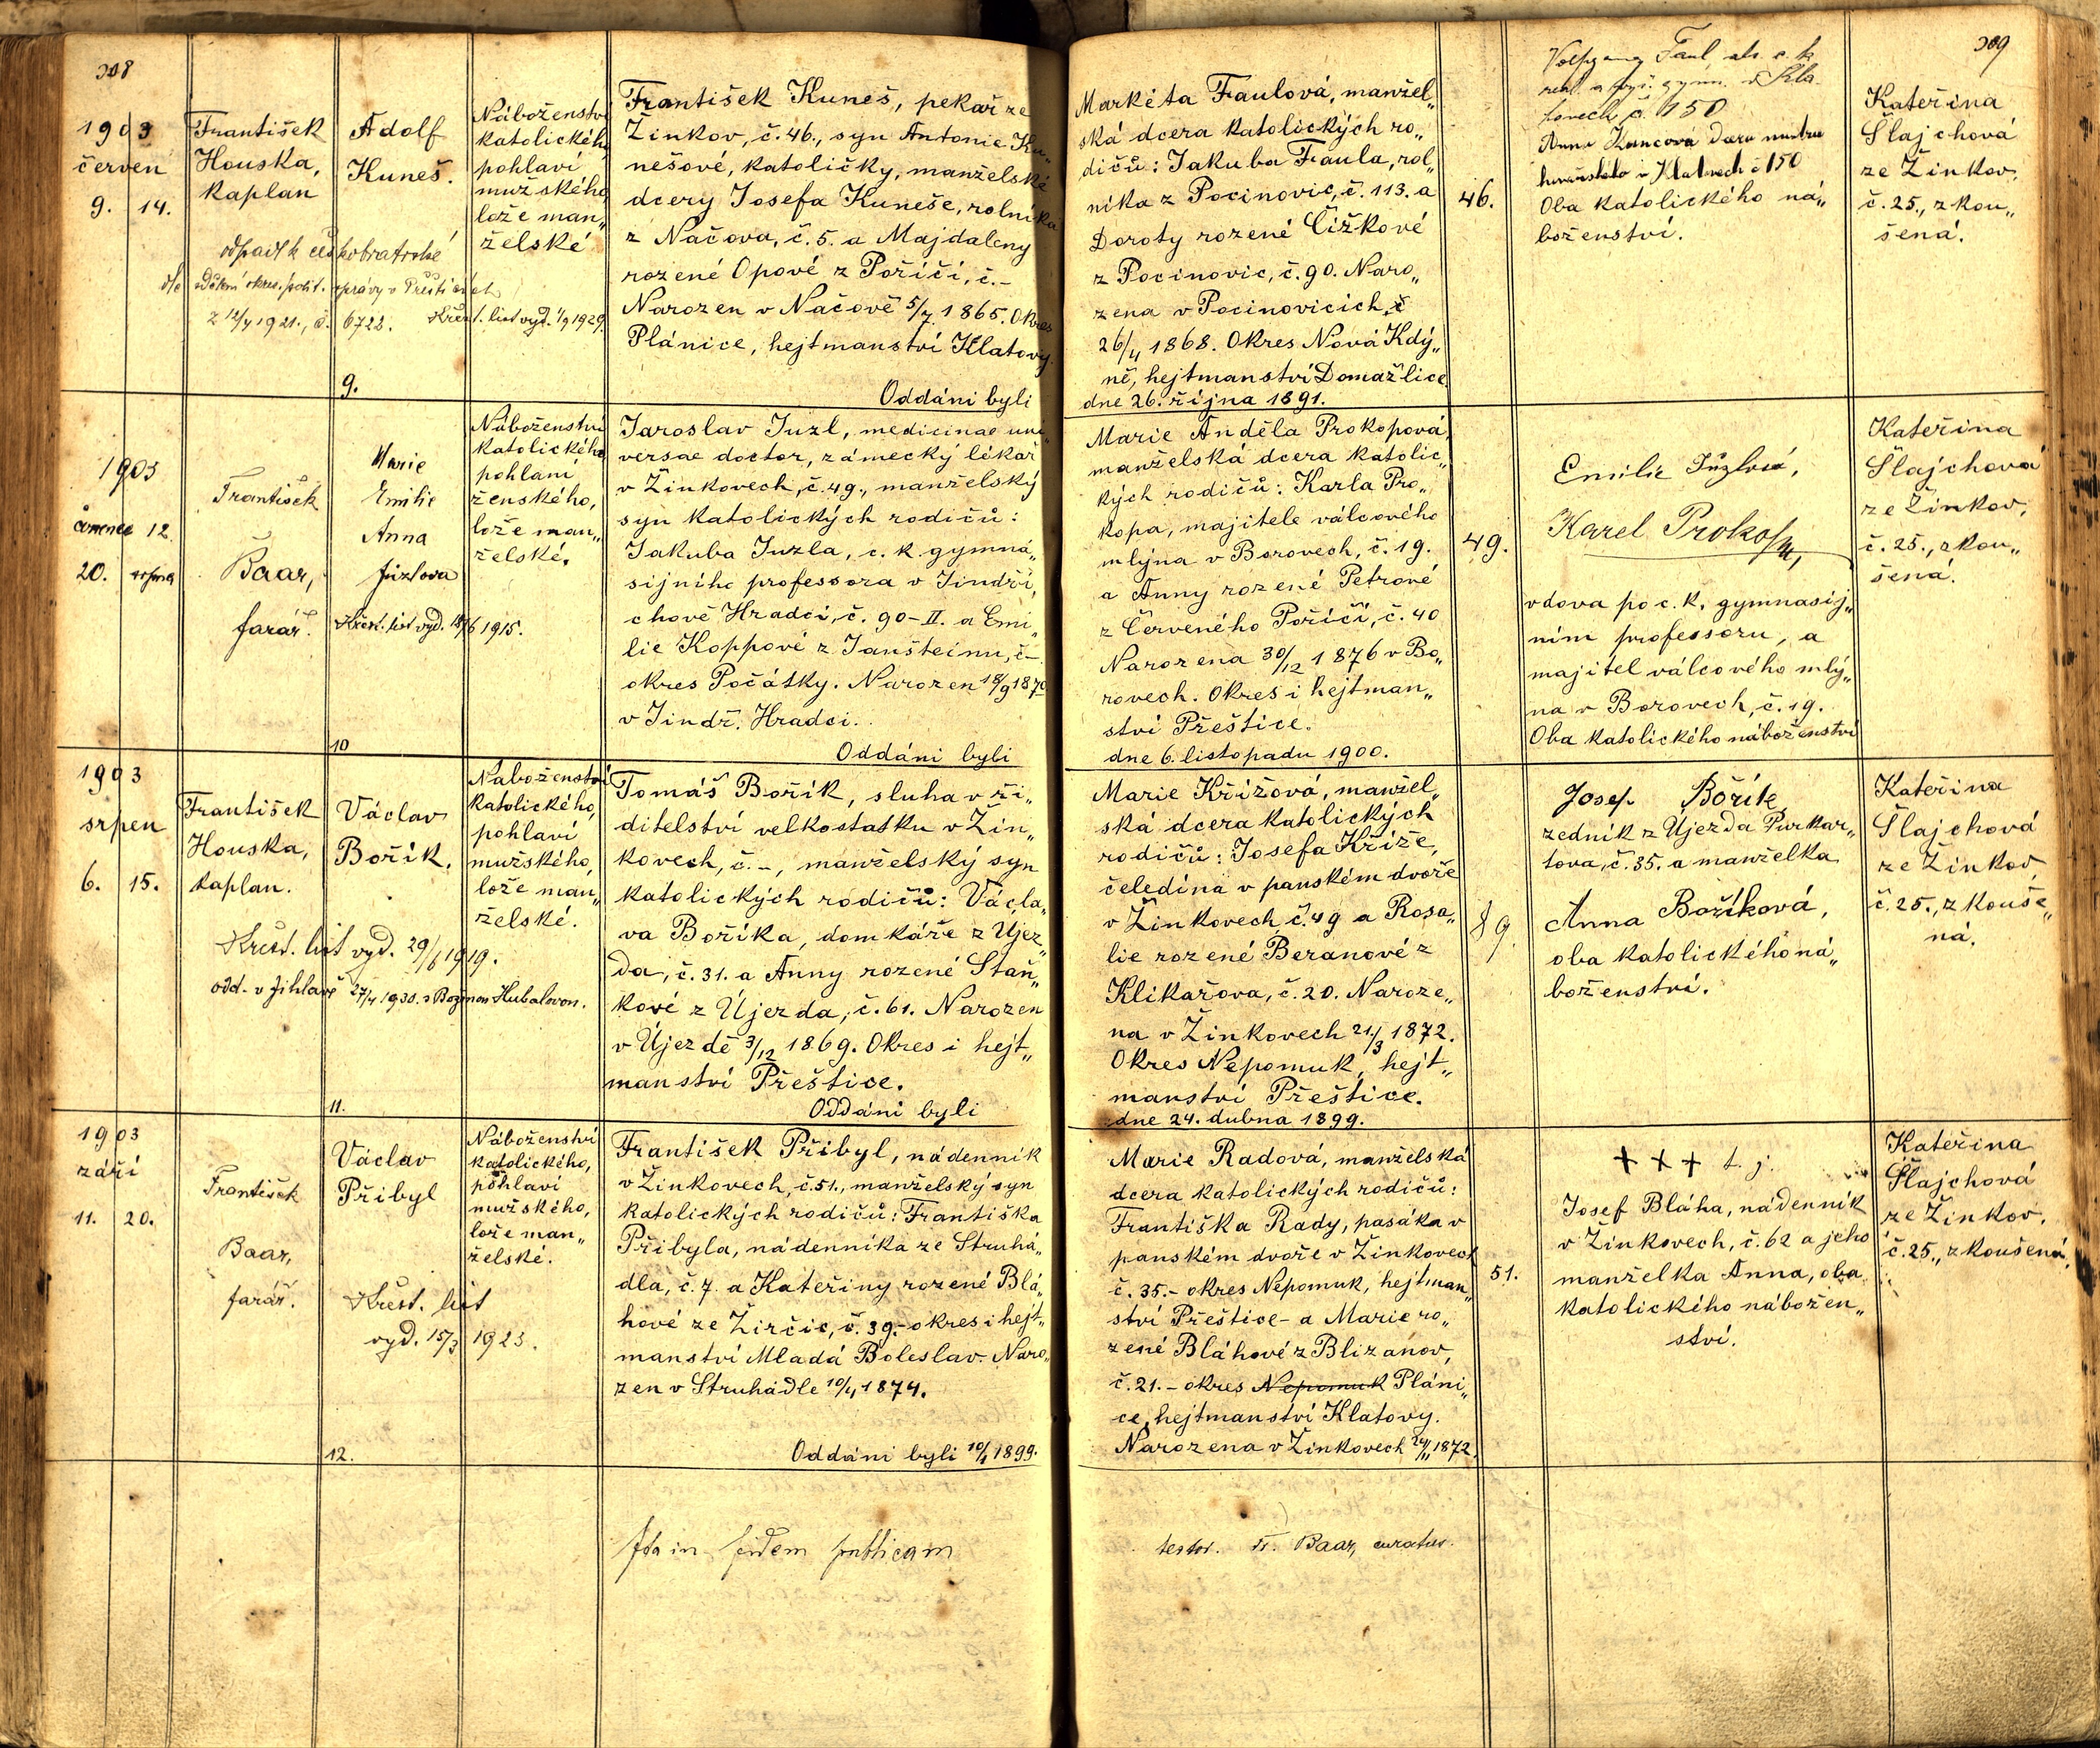 308
1903
červen
9. 14.
František
Houska,
kaplan
Adolf
Kuneš.
Náboženství
katolického,
pohlaví
mužského,
lože man„
želské
odpadl k českobratrské
dle sdělení okres. polit. správy v Přešticích
z 12/4 1921., č. 6722. Křest. list vyd. 1/9 1929.
František Kuneš, pekař ze
Žinkov, č. 46., syn Antonie Ku„
nešové, katoličky, manželské
dcery Josefa Kuneše, rolníka
z Načova, č. 5. a Majdaleny
rozené Opové z Poříčí, č. –
Narozen v Načově 5/7 1865. Okres
Plánice, hejtmanství Klatovy.
9.
Oddáni byli
1903
červenec 12.
20.
František
Baar,
farář.
Marie
Emilie
Anna
Juzlova
Křest. list vyd. 1915.
Náboženství
katolického
pohlaní
ženského,
lože man„
želské.
Jaroslav Juzl, medicinae uni„
versae doctor, zámecký lékař
v Žinkovech, č. 49., manželský
syn katolických rodičů:
Jakuba Juzla, c. k. gymná„
sijního professora v Jindři„
chově Hradci, č. 90–II. a Emi„
lie Koppové z Janšteinu, č –
okres Počátky. Narozen 18/9 1870
v Jindř. Hradci.
10
Oddáni byli
1903
srpen
6. 15.
František
Houska,
kaplan.
Václav
Bořík.
Naboženství
katolického,
pohlaví
mužského,
lože man„
želské.
Křest. list vyd. 29/6 1919.
odd. v Jihlavě 27/4 1930. s Boženou Kubalovou.
Tomáš Bořík, sluha v ři„
ditelství velkostatku v Žin„
kovech, č. –, manželský syn
katolických rodičů: Václa„
va Boříka, domkáře z Újez„
da, č. 31. a Anny rozené Staň„
kové z Újezda, č. 61. Narozen
v Újezdě 3/12 1869. Okres i hejt„
manství Přeštice.
11.
Oddáni byli
1903
září
11. 20.
František
Baar,
farář.
Václav
Přibyl
Náboženství
katolického,
pohlaví
mužského,
lože man„
želské.
Křest. list
vyd. 15/3 1923.
František Přibyl, nádenník
v Žinkovech, č. 51., manželský syn
katolických rodičů: Františka
Přibyla, nádenníka ze Struhá„
dla, č. 7. a Kateřiny rozené Blá„
hové ze Žirčic, č. 39.– okres i hejt„
manství Mladá Boleslav. Naro„
zen v Struhadle 10/4 1874.
12.
Oddáni byli 10/1 1899.
Ita in fidem publicam
309
Markéta Faulová, manžel„
ská dcera katolických ro„
dičů: Jakuba Faula, rol„
níka z Pocinovic, č. 113. a
Doroty rozené Čížkové
z Pocinovic, č. 90. Naro„
zena v Pocinovicích, č
26/4 1868. Okres Nová Kdý„
ně, hejtmanství Domažlice
dne 26. října 1891.
46.
Volfgang Faul, c. k.
real. a vyš. gymn. v Kla
tovech č. 150
Anna Kuncová dcera mistra
v Klatovech č 150
Oba katolického ná„
boženství.
Kateřina
Šlajchová
ze Žinkov,
č. 25., zkou„
šená.
Marie Anděla Prokopová,
manželská dcera katolic„
kých rodičů: Karla Pro„
kopa, majitele válcového
mlýna v Borovech, č. 19.
a Anny rozené Petrové
z Červeného Poříčí, č. 40
Narozena 30/12 1876 v Bo„
rovech. Okres i hejtman„
ství Přeštice.
dne 6. listopadu 1900.
49.
Emilie Jůzlová,
Karel Prokop,
vdova po c. k. gymnasij„
ním professoru, a
majitel válcového mlý„
na v Borovech, č. 19.
Oba katolického náboženství
Kateřina
Šlajchová
ze Žinkov,
č. 25., zkou„
šená.
Marie Křížová, manžel„
ská dcera katolických
rodičů: Josefa Kříže,
čeledína v panském dvoře
v Žinkovech č. 49 a Rosa„
lie rozené Beranové z
Klikařova, č. 20. Naroze„
na v Žinkovech 21./3 1872.
Okres Nepomuk, hejt„
manství Přeštice.
dne 24. dubna 1899.
89.
Josef Bořík
zedník z Ujezda Purkar„
tova, č. 35. a manželka
Anna Boříková,
oba katolického ná„
boženství.
Kateřina
Šlajchová
ze Žinkov,
č. 25., zkouše„
ná.
Marie Radová, manželská
dcera katolických rodičů:
Františka Rady, pasáka v
panském dvoře v Žinkovech
č. 35.– okres Nepomuk, hejtman„
ství Přeštice – a Marie ro„
zené Bláhové z Blizanov,
č. 21. – okres Nepomuk Pláni„
ce, hejtmanství Klatovy.
Narozena v Žinkovech 24/11 1872.
51.
+ + + t. j.
Josef Bláha, nádenník
v Žinkovech, č. 62 a jeho
manželka Anna, oba
katolického nábožen„
ství.
Kateřina
Šlajchová
ze Žinkov,
č. 25., zkoušená.
testor. Fr. Baar, curatus.